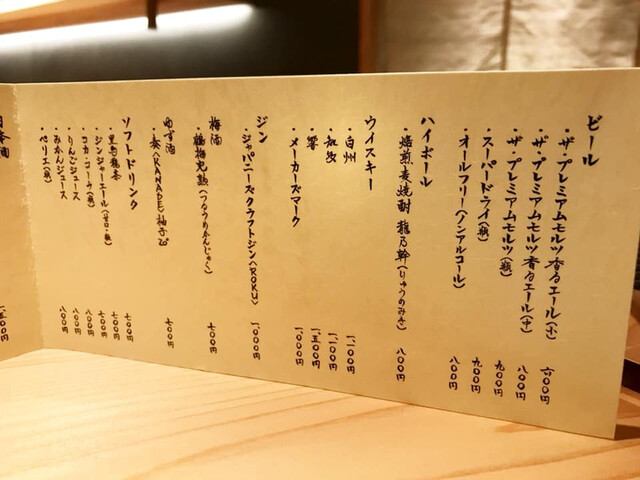 ビール
・ザ・プレミアムモルツ香るエール(小) 六〇〇円
・ザ・プレミアムモルツ香るエール(中) 八〇〇円
・ザ・プレミアムモルツ(瓶) 九〇〇円
・スーパードライ(瓶) 九〇〇円
・オールフリー(ノンアルコール) 八〇〇円
ハイボール
・焙煎麦焼酎 龍乃幹(りゅうのみき) 八〇〇円
ウイスキー
・白州 一、二〇〇円
・知多 一、二〇〇円
・響 一、五〇〇円
・メーカーズマーク 一、〇〇〇円
ジン
・ジャパニーズクラフトジン(ROKU) 一、〇〇〇円
梅酒
・鶴梅完熟(つるうめかんじゅく) 七〇〇円
ゆず酒
・奏(KANADE)柚子 七〇〇円
ソフトドリンク
・黒烏龍茶 七〇〇円
・ジンジャーエール(甘口・瓶) 七〇〇円
・コカ・コーラ(瓶) 八〇〇円
・りんごジュース 八〇〇円
・みかんジュース 八〇〇円
・ペリエ(瓶)
日本酒